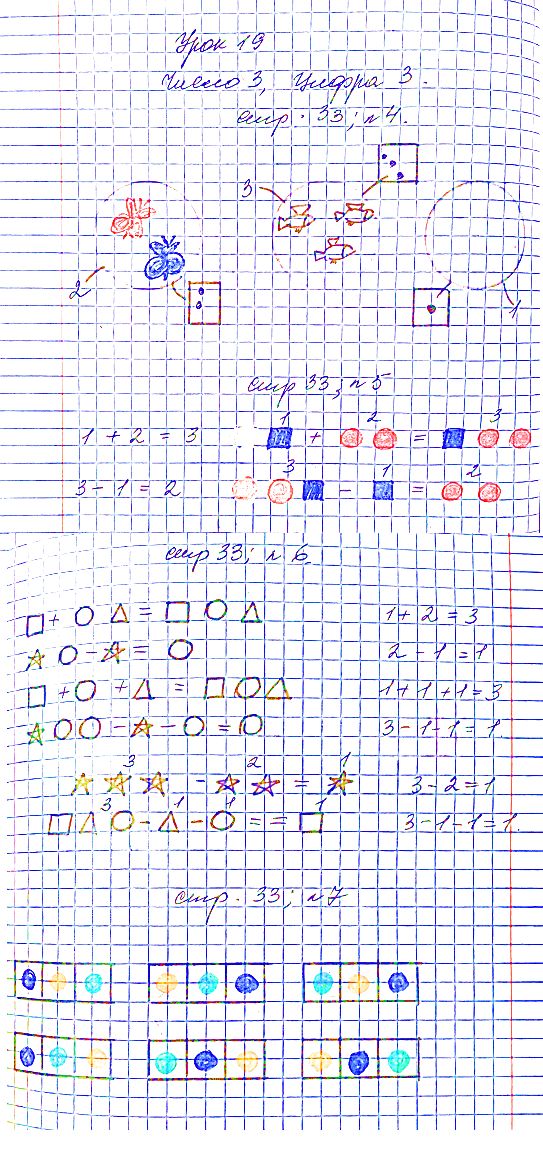 Урок 19
Число 3, Цифра 3.
стр. 33; №4.
3
2
1
стр 33; №5
1 2 3
1 + 2 = 3 + =
3 1 2
3 - 1 = 2 - =
стр 33; №6
+ = 1 + 2 = 3
- = 2 - 1 = 1
+ + = 1 + 1 + 1 = 3
- - = 3 - 1 - 1 = 1
3 2 1
- = 3 - 2 = 1
3 1 1 1
- - = = 3 - 1 - 1 = 1.
стр. 33; №7